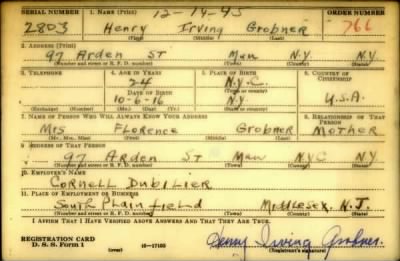 SERIAL NUMBER 1. NAME (Print) 12-14-45 ORDER NUMBER
2803 Henry Irving Grobner 766
(First) (Middle) (Last)
2. ADDRESS (Print)
97 Arden ST Man N.Y. N.Y.
(Number and street or R. F. D. number) (Town) (County) (State)
3. TELEPHONE 4. AGE IN YEARS 5. PLACE OF BIRTH 6. COUNTRY OF CITIZENSHIP
24 N.Y.C.
DATE OF BIRTH (Town or county)
10-6-16 N.Y. U.S.A.
(Exchange) (Number) (Mo.) (Day) (Yr.) (State or country)
7. NAME OF PERSON WHO WILL ALWAYS KNOW YOUR ADDRESS 8. RELATIONSHIP OF THAT PERSON
Mrs Florence Grobner Mother
(Mr., Mrs., Miss) (First) (Middle) (Last)
9. ADDRESS OF THAT PERSON
97 Arden ST Man NYC N.Y.
(Number and street or R. F. D. number) (Town) (County) (State)
10. EMPLOYER'S NAME
Cornell Dubilier
11. PLACE OF EMPLOYMENT OR BUSINESS
South Plainfield Middlesex. N.J.
(Number and street or R. F. D. number) (Town) (County) (State)
I AFFIRM THAT I HAVE VERIFIED ABOVE ANSWERS AND THAT THEY ARE TRUE.
REGISTRATION CARD
D. S. S. Form 1 (over) 16-17105 Henry Irving Grobner.
(Registrant's signature)